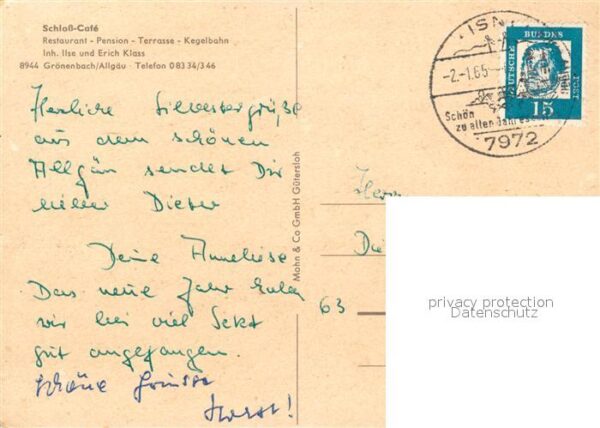 Schloß-Café
Restaurant - Pension - Terrasse - Kegelbahn
Inh. Ilse und Erich Klass
8944 Grönenbach/Allgäu · Telefon 0 83 34/3 46
Herzliche Silvestergrüße
aus dem schönen
Allgäu sendet Dir
lieber Dieter
Deine Anneliese
Das neue Jahr haben
wir bei viel Sekt
gut angefangen.
schöne Grüsse
Horst!
Mohn & Co GmbH Gütersloh
ISN
-2.-1.65
Schön
zu allen Jahresz
7972
DEUTSCHE BUNDES POST
15
Herrn
Di
63
privacy protection
Datenschutz